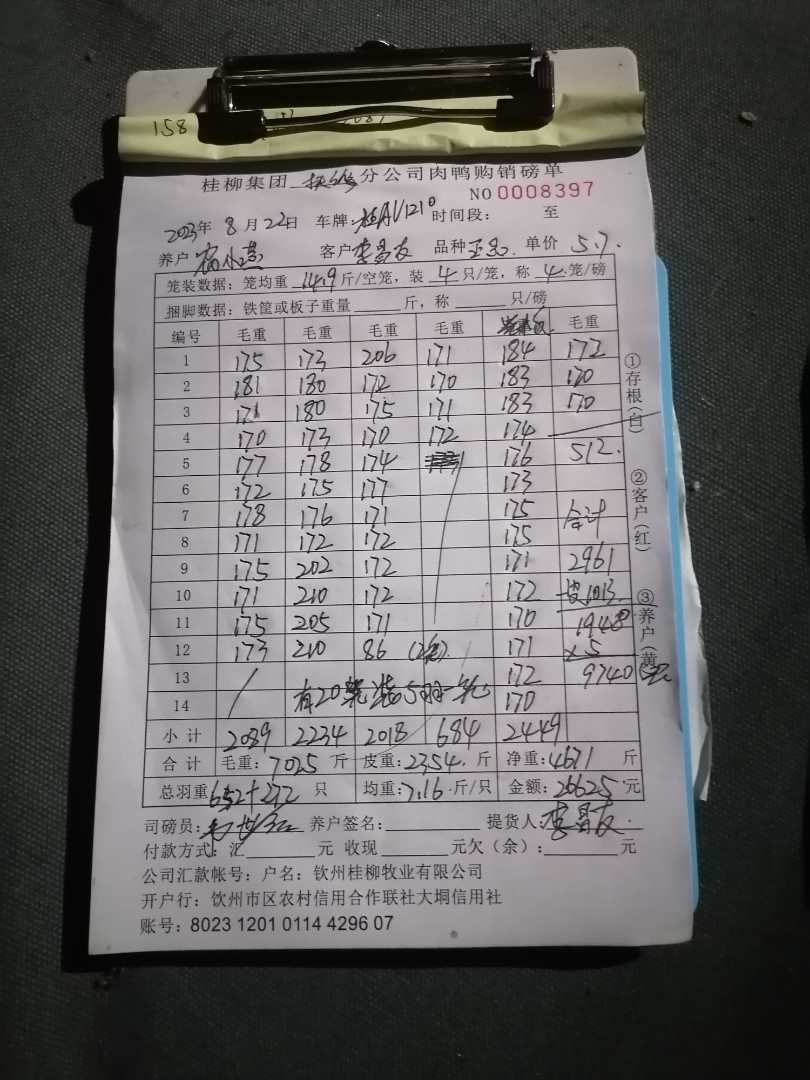 158
桂柳集团 分公司肉鸭购销磅单
NO 0008397
2023年 8月22日 车牌: 时间段: 至
养户 客户 李昌友 品种 单价 5.7.
笼装数据: 笼均重 14.9 斤/空笼, 装 4 只/笼, 称 4 笼/磅
捆脚数据: 铁筐或板子重量 斤, 称 只/磅
编号 毛重 毛重 毛重 毛重 毛重
1 175 173 206 171 184 172
2 181 180 172 170 183 170
3 171 180 175 171 183 170
4 170 173 170 172 174
5 177 178 174 176 512.
6 172 175 177 173
7 178 176 171 175 合计
8 171 172 172 175
9 175 202 172 171 2961
10 171 210 172 172 皮1013.
11 175 205 171 170 1948
12 173 210 86 (2笼) 171 ×5
13 / 有20笼装5羽一笼 172 9740
14 170
小计 2089 2234 2018 684 2449
合计 毛重: 7025 斤 皮重: 2354. 斤 净重: 4671 斤
总羽重 652+272 只 均重: 7.16 斤/只 金额: 26625 元
司磅员: 养户签名: 提货人: 李昌友
付款方式: 汇 元 收现 元欠(余): 元
公司汇款帐号: 户名: 钦州桂柳牧业有限公司
开户行: 钦州市区农村信用合作联社大垌信用社
账号: 8023 1201 0114 4296 07
①存根(白)
②客户(红)
③养户(黄)